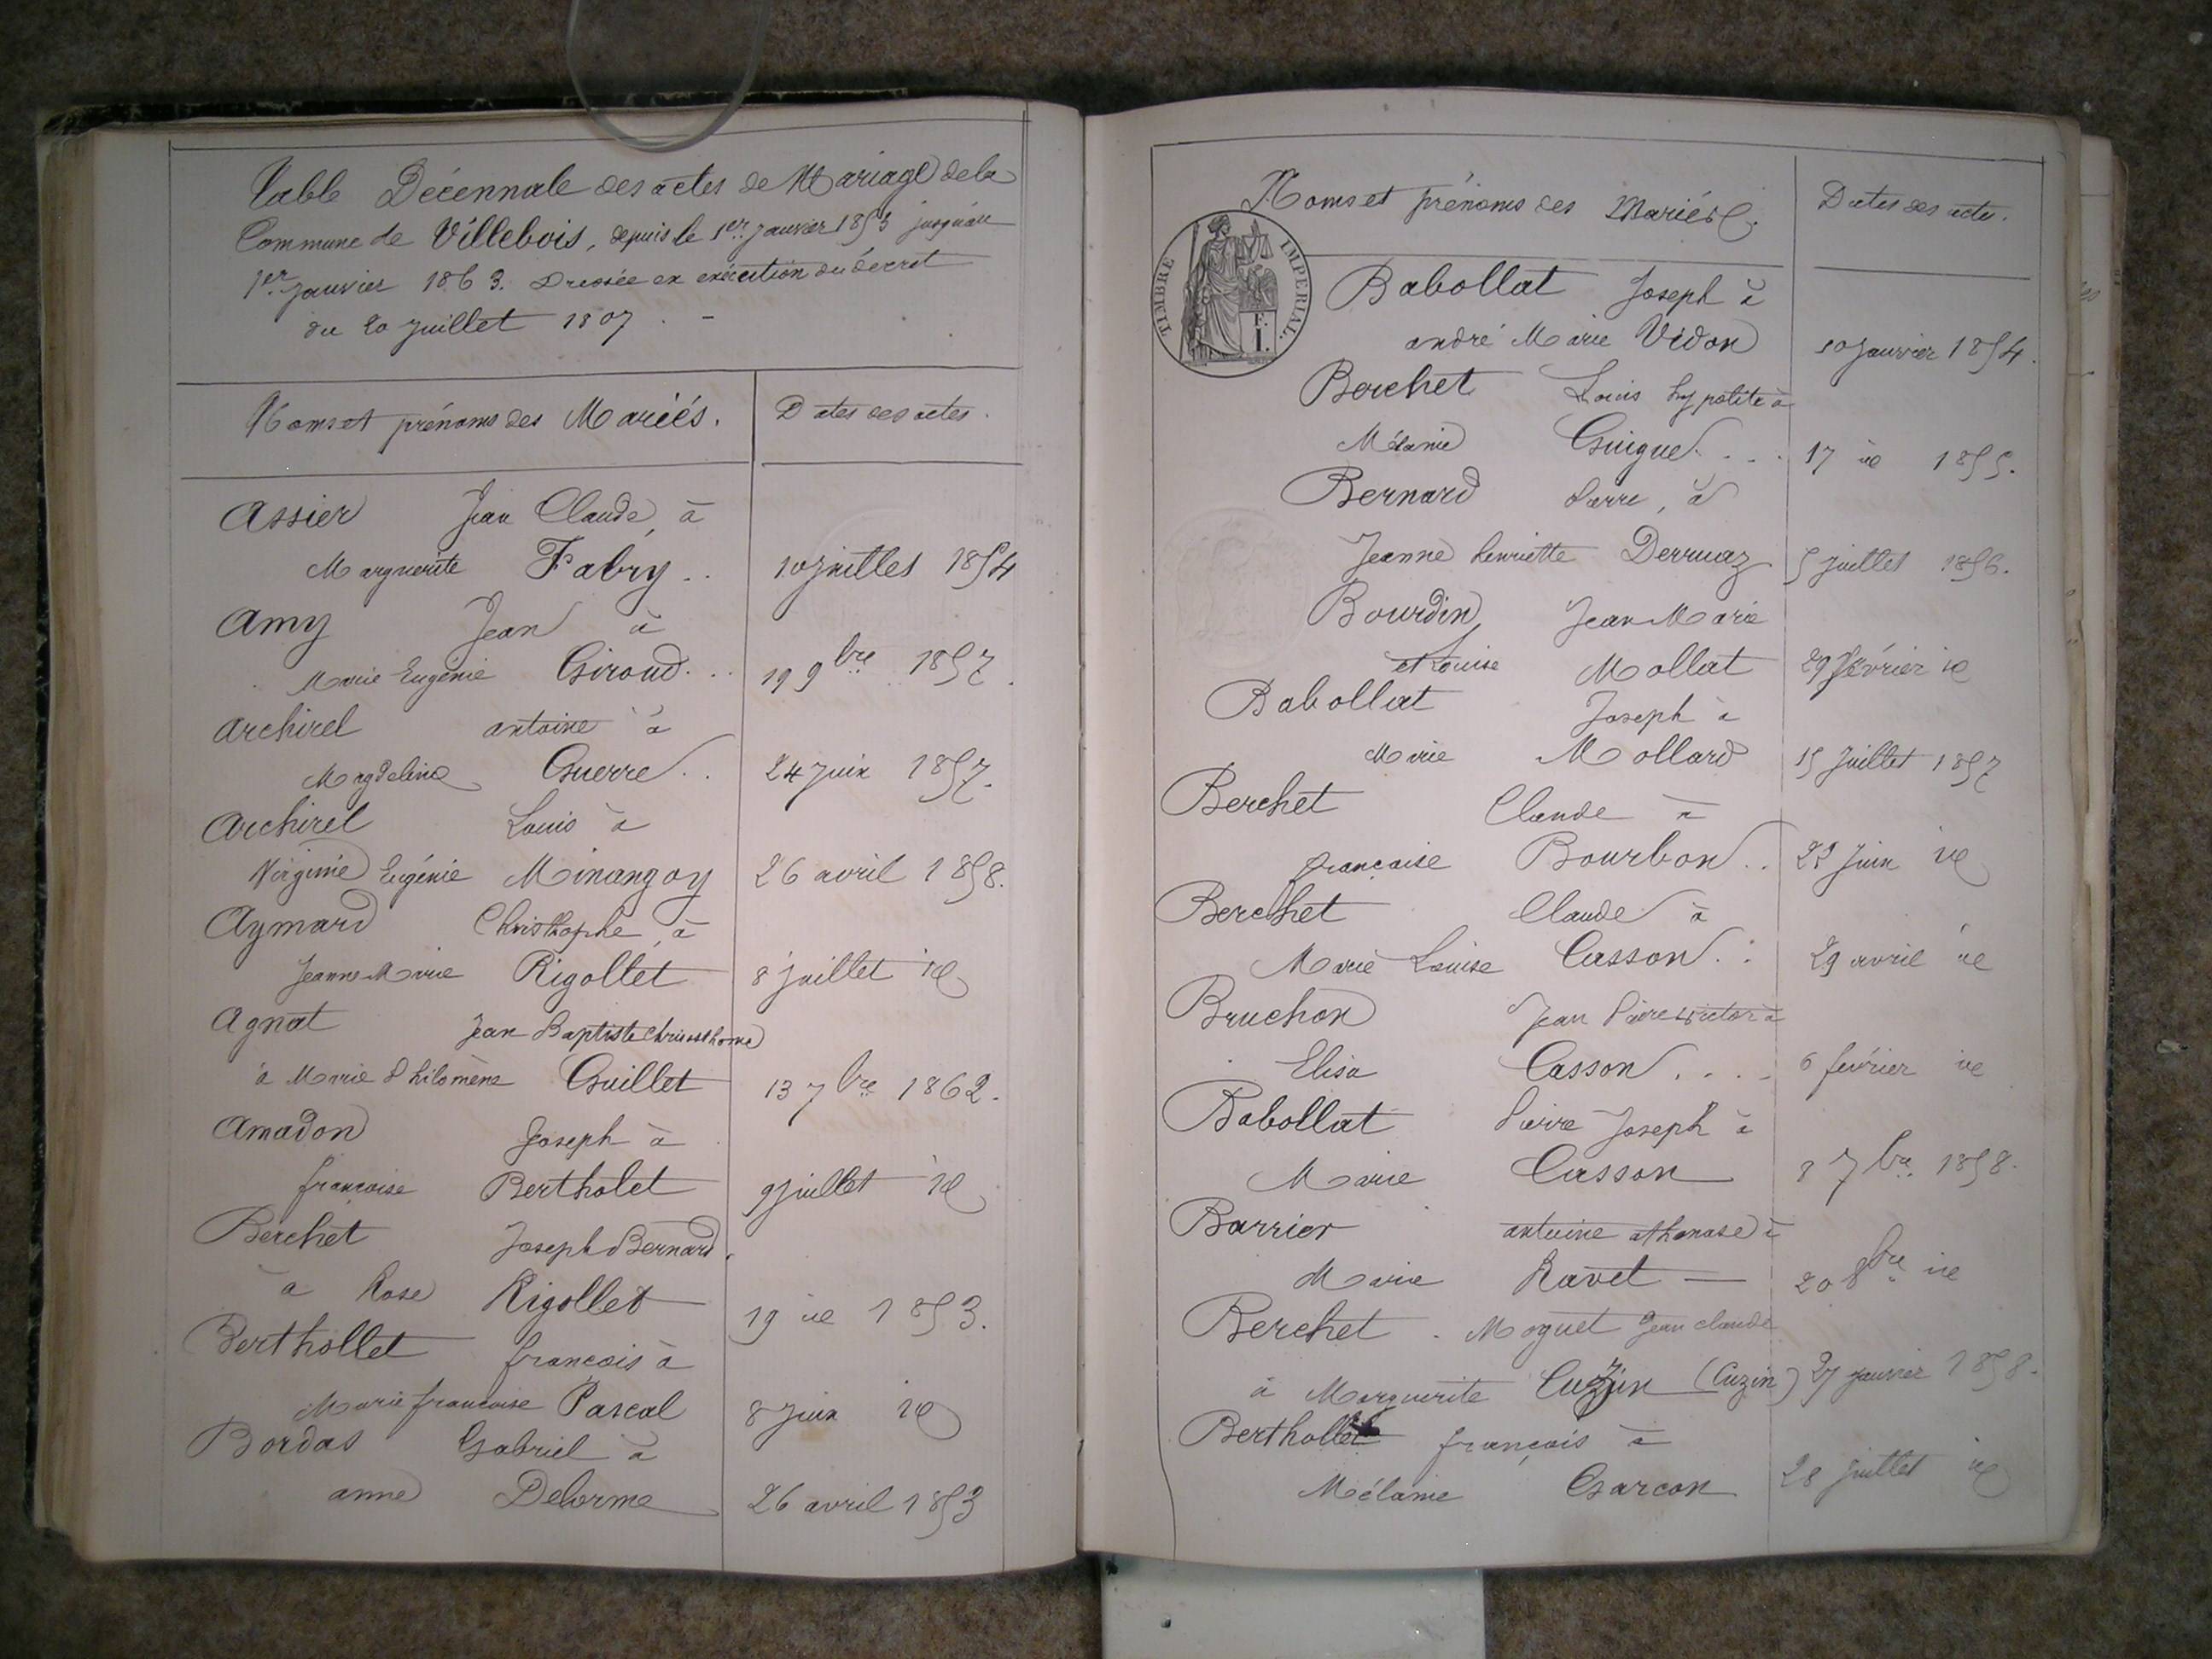 Table Décennale des actes de Mariage de la
Commune de Villebois, depuis le 1er Janvier 1853 jusqu'au
1er Janvier 1863. Dressée en exécution du décret
du 20 Juillet 1807. -
Noms et prénoms des Mariés. Dates des actes.
Assier Jean Claude, à
Marguerite Fabry .. 10 juillet 1854
Amy Jean à
Marie Eugénie Giroud... 19 9bre 1857.
Archirel antoine à
Magdeline Guerre .. 24 Juin 1857.
Archirel Louis à
Virginie Eugénie Minangoy 26 avril 1858.
Aymard Christhophe, à
Jeanne Marie Rigollet 8 juillet id
Agnat Jean Baptiste
à Marie Philomène Guillet 13 7bre 1862.
Amadon Joseph à
françoise Bertholet 9 juillet id
Berchet Joseph Bernard,
à Rose Rigollet 19 id 1853.
Berthollet françois à
Marie francoise Pascal 8 Juin id
Bordas Gabriel à
anne Delorme 26 avril 1853
Noms et prénoms des Mariés. Dates des actes.
TIMBRE IMPERIAL.
F.
I.
Babollat Joseph à
andré Marie Vidon 10 Janvier 1854.
Berchet Louis hypolite à
Mélanie Guigue ... 17 id 1855.
Bernard Pierre, à
Jeanne henriette Derruaz 5 juillet 1856.
Bourdin Jean Marie
et Louise Mollat 29 février id
Babollat Joseph à
Marie Mollard 15 Juillet 1857
Berchet Claude à
française Bourbon .. 22 Juin id
Berchet Claude à
Marie Louise Casson .. 29 avril id
Bruchon Jean Pierre victor à
Elisa Casson .... 6 février id
Babollat Pierre Joseph à
Marie Casson 8 7bre 1858.
Barrier antoine athanase à
Marie Ravet — 20 8bre id
Berchet . Moguet Jean claude
à Marguerite Cuzin (Cuzin) 27 janvier 1858.
Berthollet françois à
Mélanie Garcon 28 juillet id